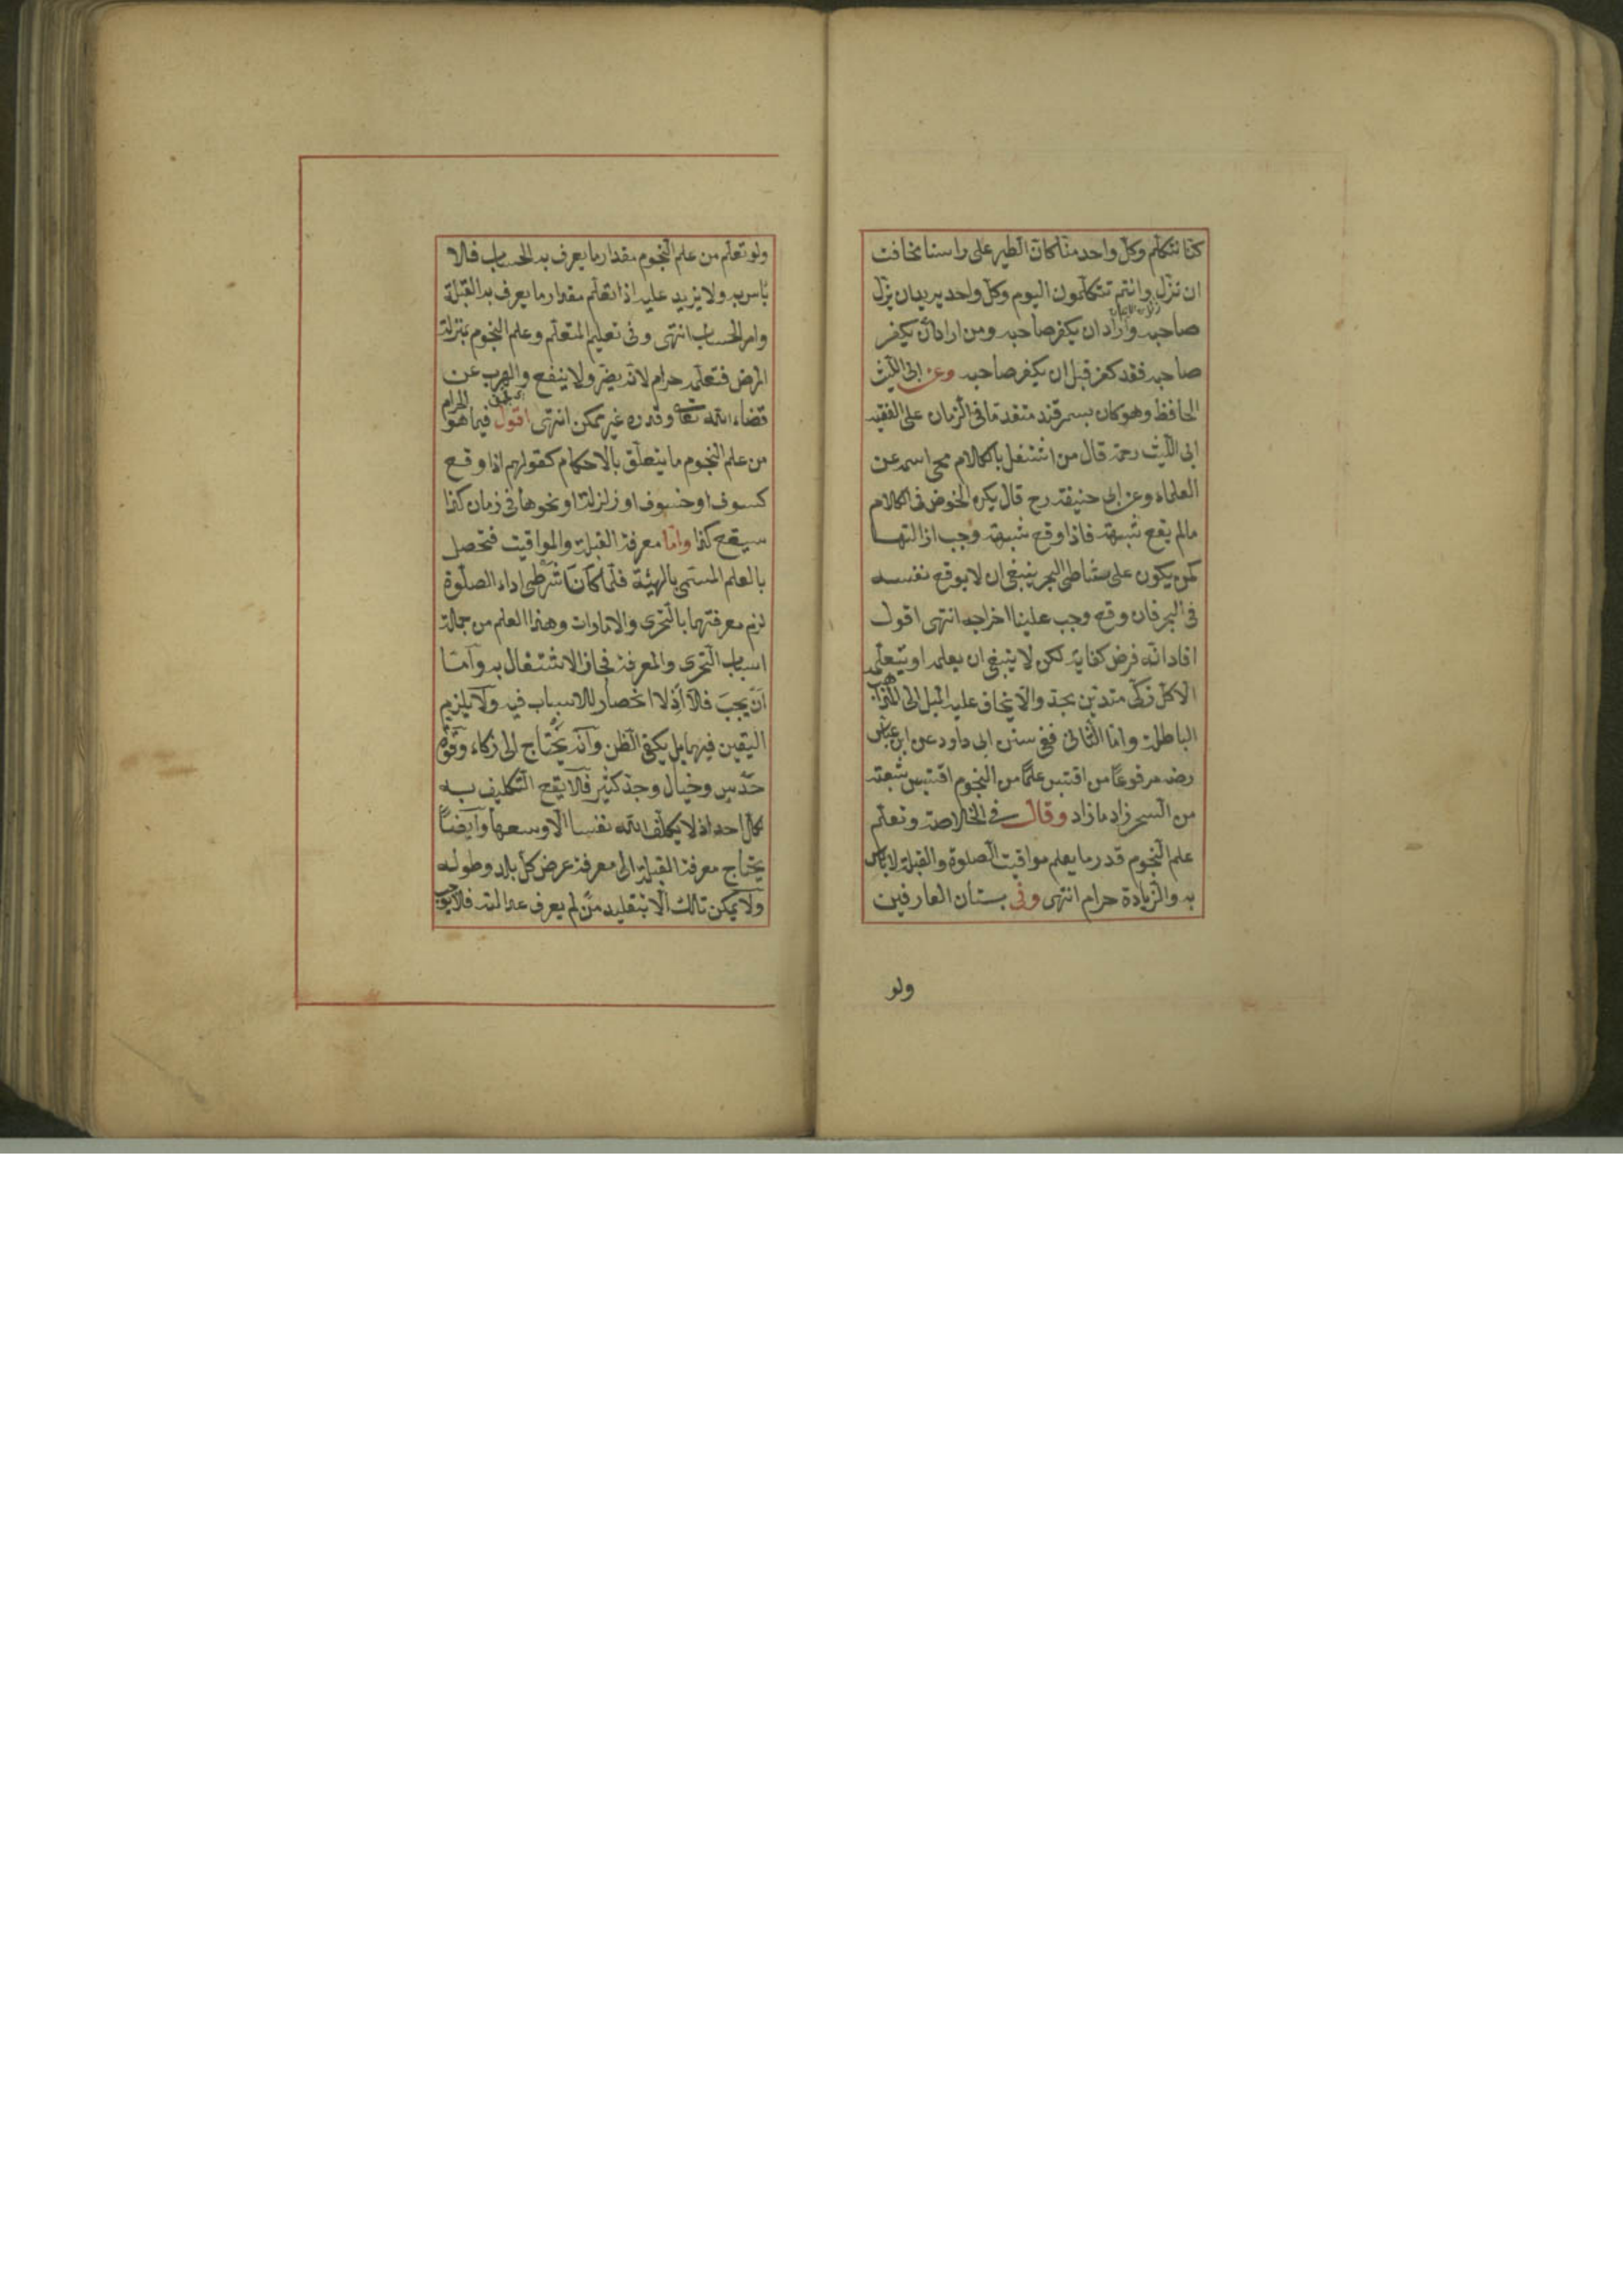 كنا نتكلم وكل واحد منا كان الطير على راسنا مخافت
ان نزل وانتم تتكلمون اليوم وكل واحد يريد ان يزل
صاحبه واراد ان يكفر صاحبه ومن اراد ان يكفر
صاحبه فقد كفر قبل ان يكفر صاحبه وعن ابى الليث
الحافظ وهو كان بسمرقند متقدما فى الزمان على الفقيه
ابى الليث رحمة قال من اشتغل بالكلام محى اسمه عن
العلماء وعن ابى حنيفة رح قال يكره الخوض فى الكلام
مالم يقع شبهة فاذا وقع شبهة وجب ازالتها
كمن يكون على شاطى البحر ينبغى ان لا يوقع نفسه
فى البحر فان وقع وجب علينا اخراجه انتهى اقول
افاد انه فرض كفاية لكن لا ينبغى ان يعلمه او يتعلمه
الا كل زكى متدين مجد والا يخاف عليه الميل الى المذاهب
الباطلة واما الثانى ففى سنن ابى داود عن ابن عباس
رضه مرفوعا من اقتبس علما من النجوم اقتبس شعبة
من السحر زاد ما زاد وقال فى الخلاصة وتعلم
علم النجوم قدر ما يعلم مواقيت الصلوة والقبلة لا بأس
به والزيادة حرام انتهى وفى بستان العارفين
ولو
ولو تعلم من علم النجوم مقدار ما يعرف به الحساب فلا
بأس به ولا يزيد عليه اذا تعلم مقدار ما يعرف به القبلة
وامر الحساب انتهى وفى تعليم المتعلم وعلم النجوم بمنزلة
المرض فتعلمه حرام لانه يضر ولا ينفع والهرب عن
قضاء الله تعالى وقدره غير ممكن انتهى اقول فيما هو الحرام
من علم النجوم ما يتعلق بالاحكام كقولهم اذا وقع
كسوف او خسوف او زلزلة او نحوها فى زمان كذا
سيقع كذا واما معرفة القبلة والمواقيت فتحصل
بالعلم المسمى بالهيئة فلما كانتا شرطى اداء الصلوة
لزم معرفتهما بالتحرى والامارات وهذا العلم من جملة
اسباب التحرى والمعرفة فجاز الاشتغال به واما
ان يجب فلا اذ لا انحصار للاسباب فيه ولا يلزم
اليقين فيهما بل يكفى الظن وانه يحتاج الى زكاء وقوة
حدس وخيال وجد كثير فلا يقع التكليف به
لكل احد اذ لا يكلف الله نفسا الا وسعها وايضا
يحتاج معرفة القبلة الى معرفة عرض كل بلد وطوله
ولا يمكن ذلك الا بتقليد من لم يعرف عدالته فلا يوجب